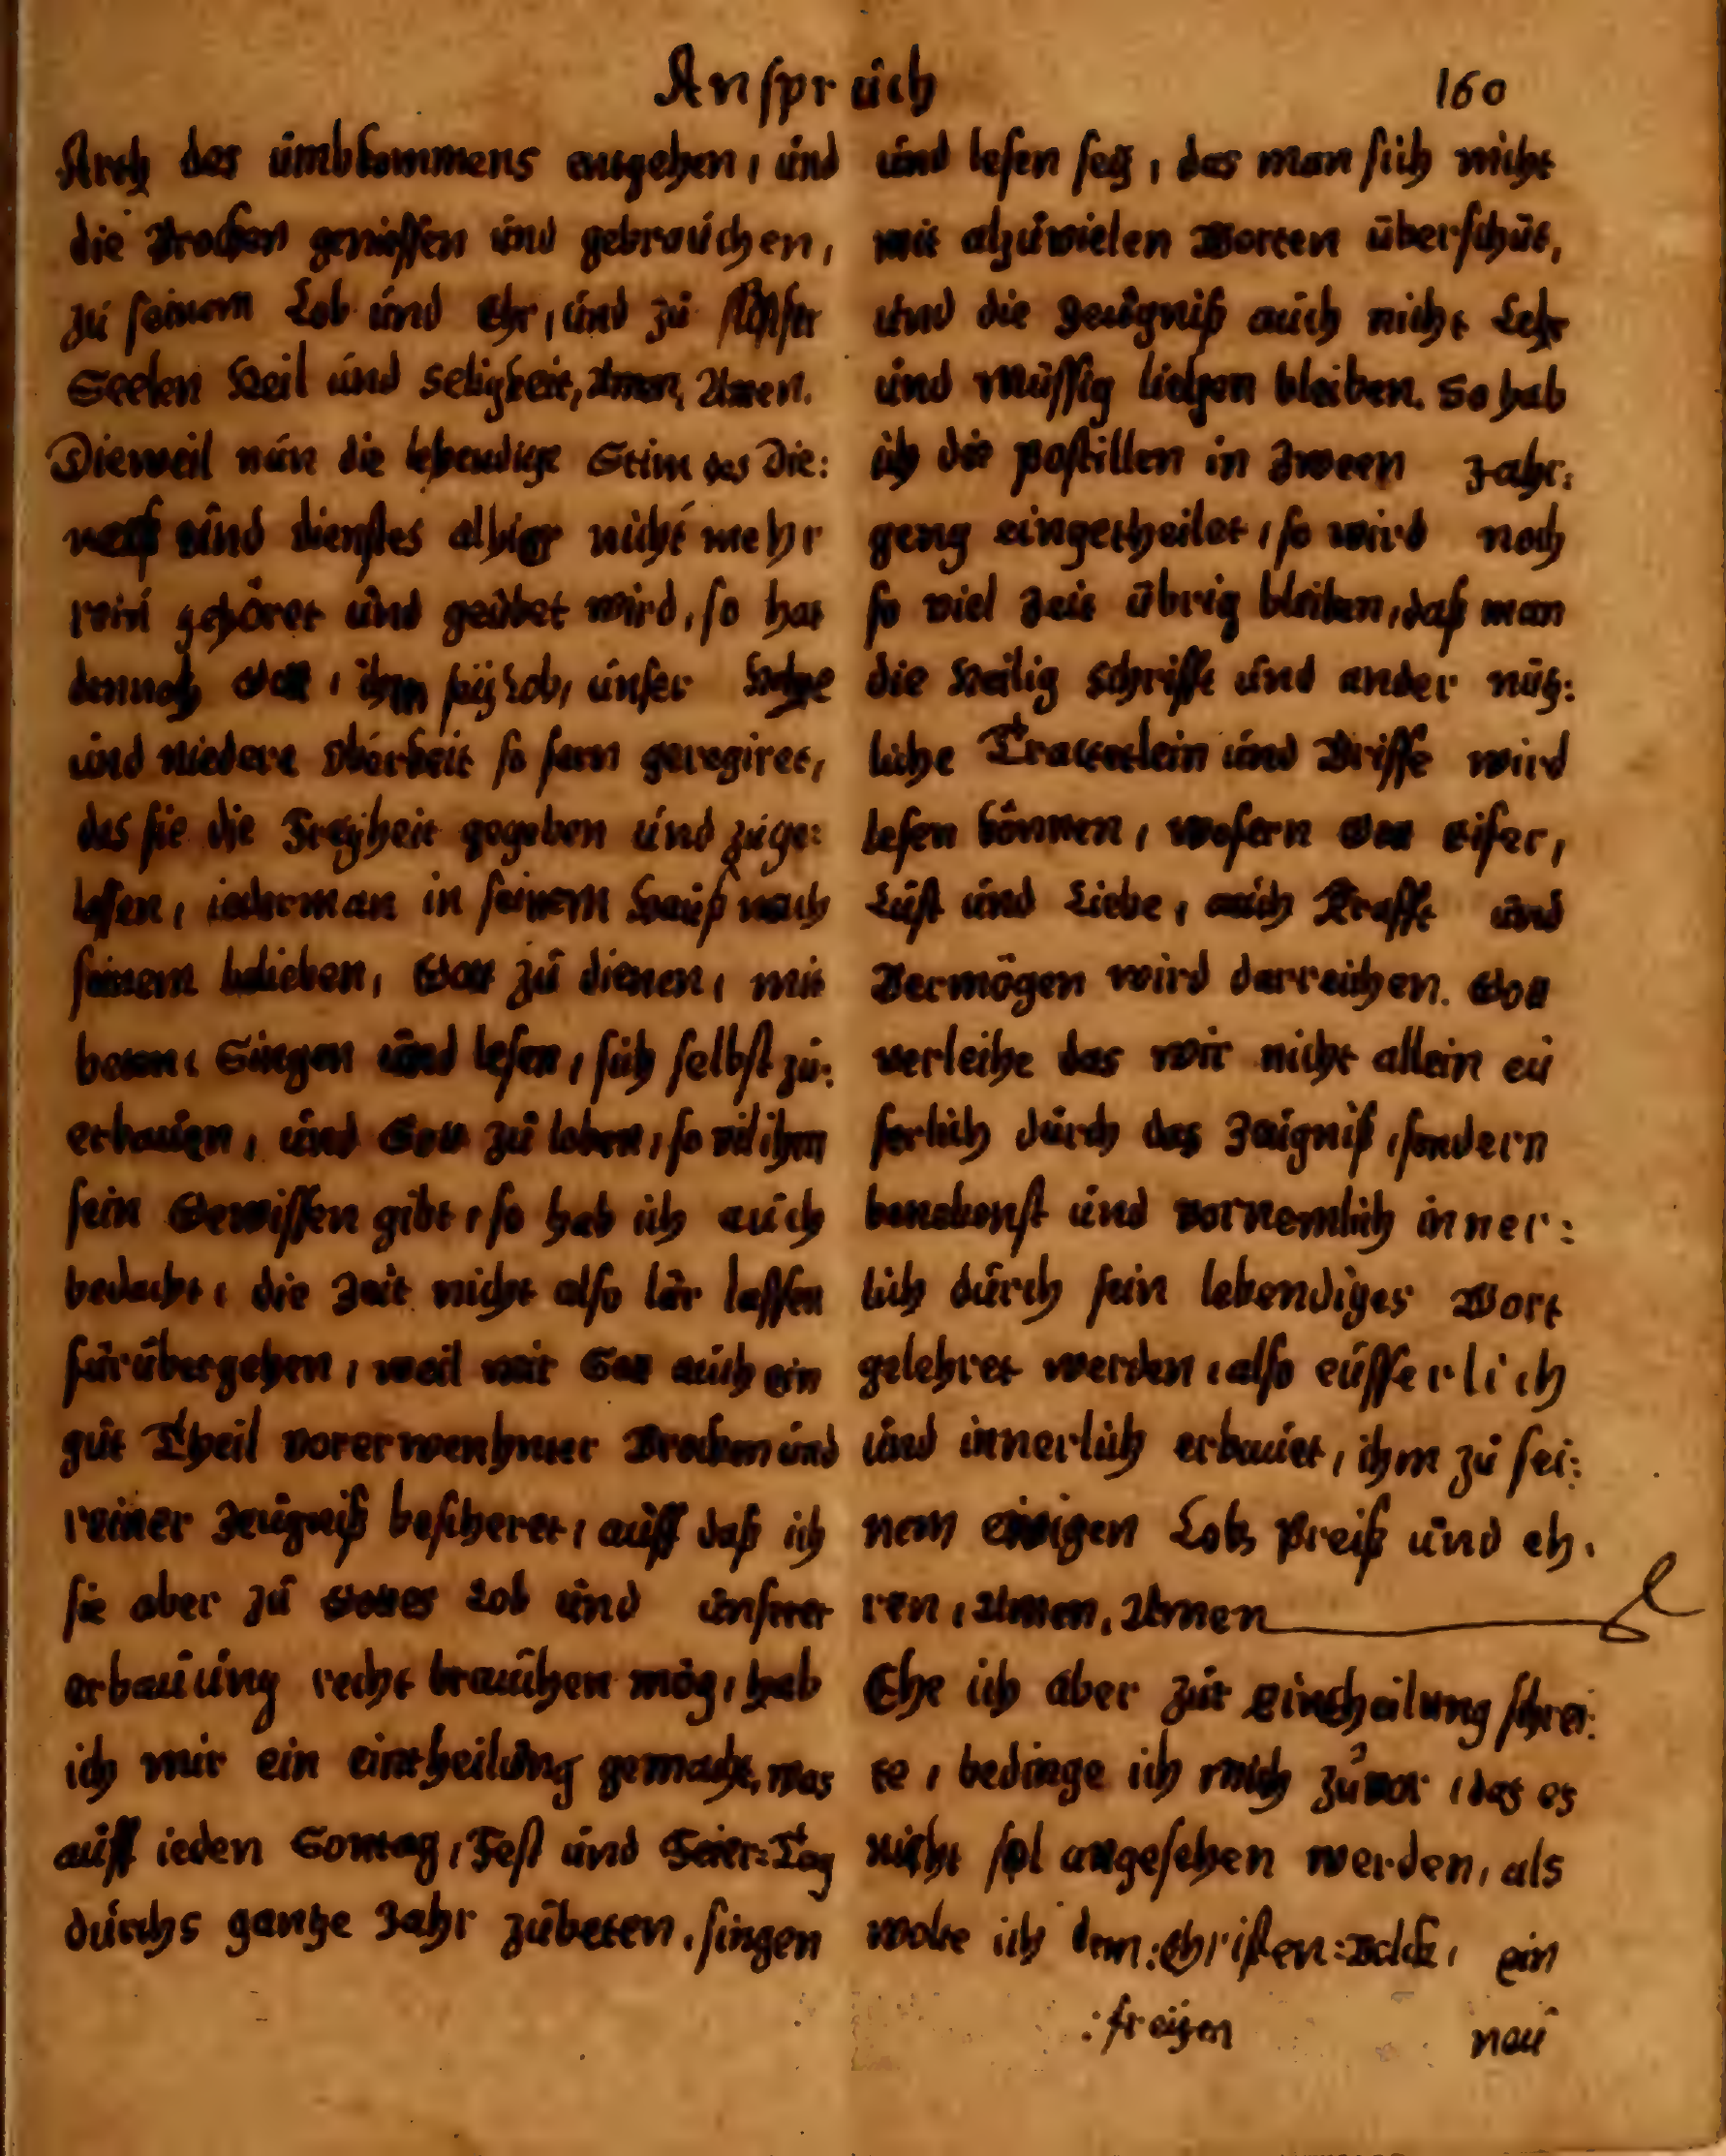 Anspruch
160
des umbkommens entgehen, und
die Brocken geniessen und gebrauchen,
zu seinem Lob und Ehr, und zu
Seelen Heil und Seligkeit, Amen, Amen.
Dieweil nun die lebendige Stim des Die:
und dienstes alhier nicht mehr
gehöret und geübet wird, so hat
dennoch Gott, ihm sey Lob, unser Hohe
und Niedere Oberkeit so fern geregiret,
das sie die Freyheit gegeben und zuge:
lassen, iederman in seinem Hauß nach
seinem belieben, Gott zu dienen, mit
beten, Singen und lesen, sich selbst zu:
erbauen, und Gott zu loben, so vil ihm
sein Gewissen gibt, so hab ich auch
bedacht, die Zeit nicht also lär lassen
fürübergehen, weil mir Gott auch ein
gut Theil vorerwenhnter Brocken und
reiner Zeugniß bescheret, auff daß ich
sie aber zu Gottes Lob und unserer
erbauung recht brauchen mög, hab
ich mir ein eintheilung gemacht, was
auff ieden Sontag, Fest und Feier=Tag
durchs gantze Jahr zubeten, singen
und lesen sey, das man sich nicht
mit alzuvielen Worten überschüt,
und die Zeugniß auch nicht Lehr
und Müssig liegen bleiben. So hab
ich die postillen in Zween Jahr:
geng eingetheilet, so wird noch
so viel Zeit übrig bleiben, daß man
die Heilig Schrifft und ander nütz:
liche Tractetlein und Briffe wird
lesen können, wofern Gott eifer,
Lust und Liebe, auch Krafft und
Vermögen wird darreichen. Gott
verleihe das wir nicht allein eü
serlich durch das Zeugniß, sondern
benebenst und vornemlich inner:
lich durch sein lebendiges Wort
gelehret werden, also eüsserlich
und innerlich erbauet, ihm zu sei:
nem ewigen Lob, Preiß und eh.
ren, Amen, Amen
Ehe ich aber zur Eintheilung schrei:
te, bedinge ich mich zuvor, das es
nicht sol angesehen werden, als
wolte ich dem :Christen=Volck, ein
:freyen
neu